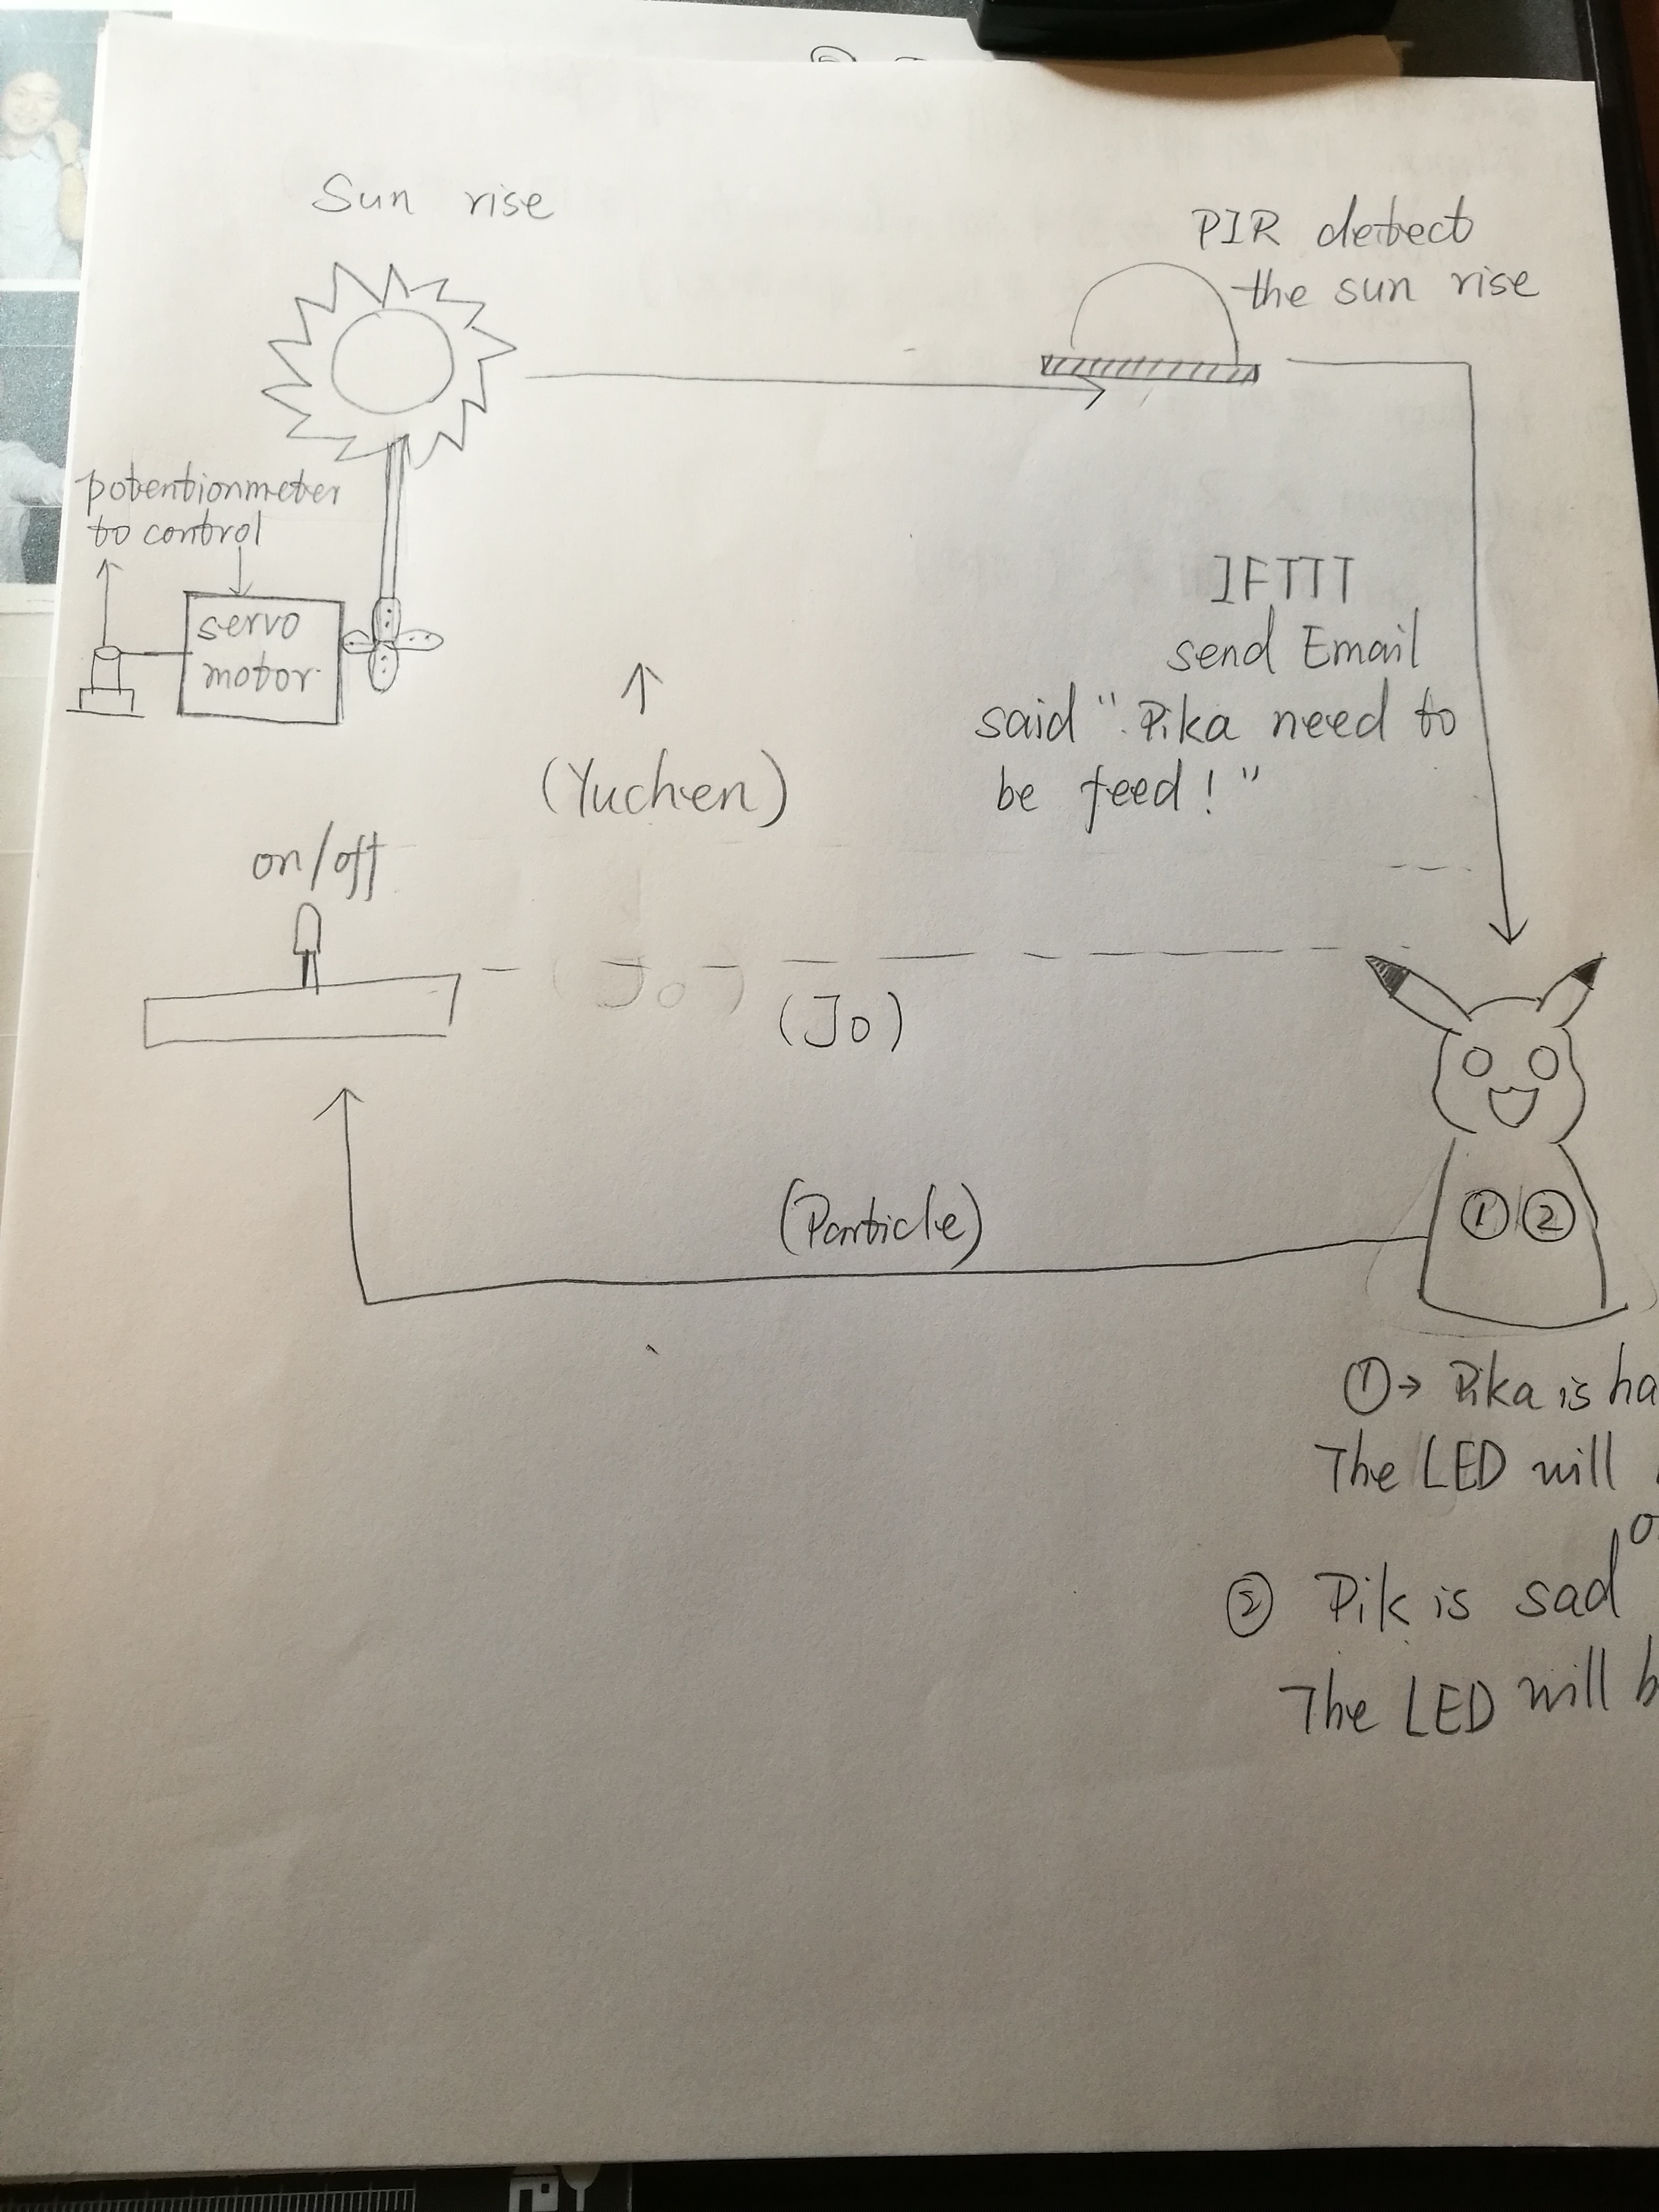 Sun rise
PIR detect
the sun rise
potentionmeter
to control
servo
motor
IFTTT
send Email
said "Pika need to
be feed!"
(Yuchen)
on/off
(Jo)
(Jo)
(Particle)
① ②
① → Pika is ha
The LED will
② Pik is sad
The LED will b